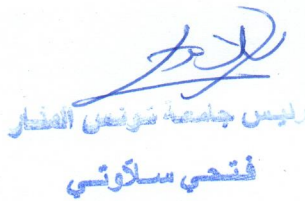 رئيس جامعة تونس المنار
فتحي سلاوتي